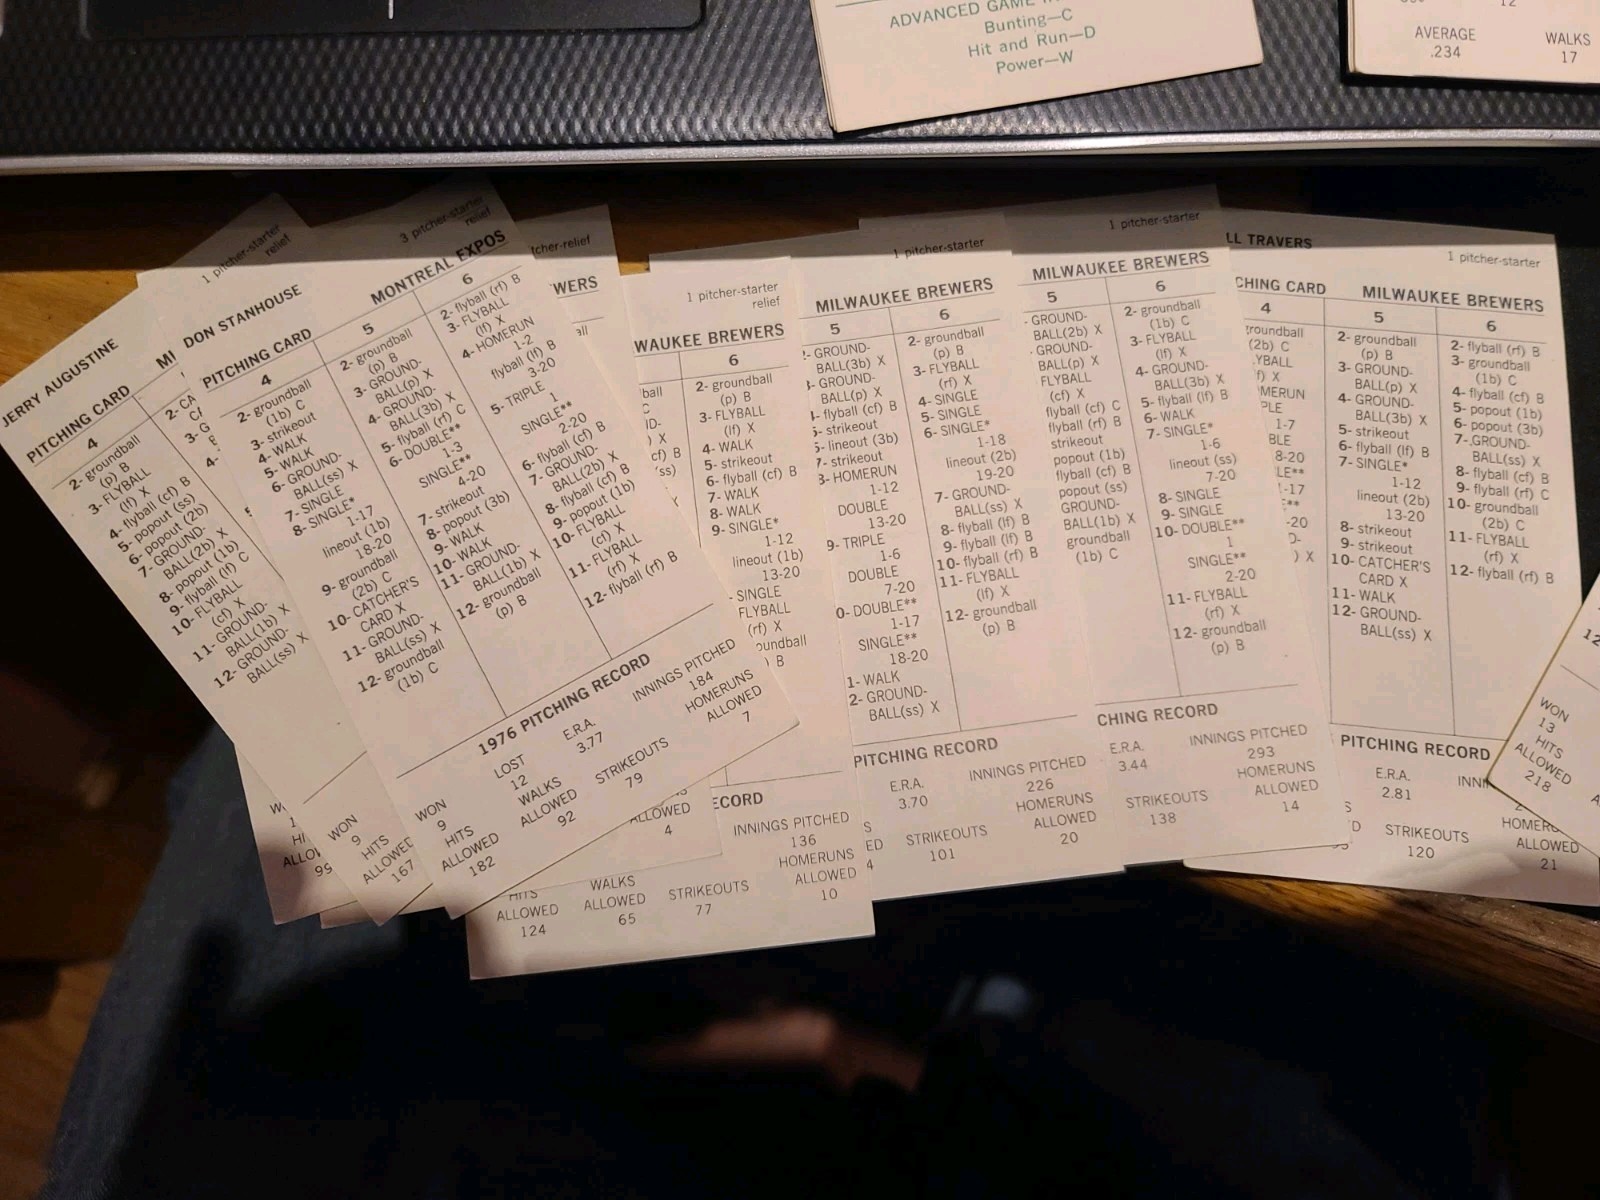 ADVANCED GAME
Bunting—C
Hit and Run—D
Power—W
12
AVERAGE
.234
WALKS
17
1 pitcher-starter
relief
JERRY AUGUSTINE
PITCHING CARD
4
2- groundball
(p) B
3- FLYBALL
(lf) X
4- flyball (cf) B
5- popout (ss)
6- popout (2b)
7- GROUND-
BALL(2b) X
8- popout (1b)
9- flyball (lf) C
10- FLYBALL
(cf) X
11- GROUND-
BALL(1b) X
12- GROUND-
BALL(ss) X
WON
9
HITS
ALLOWED
167
99
3 pitcher-starter
relief
DON STANHOUSE
MONTREAL EXPOS
PITCHING CARD
4
2- groundball
(1b) C
3- strikeout
4- WALK
5- WALK
6- GROUND-
BALL(ss) X
7- SINGLE
8- SINGLE*
1-17
lineout (1b)
18-20
9- groundball
(2b) C
10- CATCHER'S
CARD X
11- GROUND-
BALL(ss) X
12- groundball
(1b) C
5
2- groundball
(p) B
3- GROUND-
BALL(p) X
4- GROUND-
BALL(3b) X
5- flyball (rf) C
6- DOUBLE**
1-3
SINGLE**
4-20
7- strikeout
8- popout (3b)
9- WALK
10- WALK
11- GROUND-
BALL(1b) X
12- groundball
(p) B
6
2- flyball (rf) B
3- FLYBALL
(lf) X
4- HOMERUN
1-2
flyball (lf) B
3-20
5- TRIPLE
1
SINGLE**
2-20
6- flyball (cf) B
7- GROUND-
BALL(2b) X
8- flyball (cf) B
9- popout (1b)
10- FLYBALL
(cf) X
11- FLYBALL
(rf) X
12- flyball (rf) B
1976 PITCHING RECORD
WON
9
LOST
12
E.R.A.
3.77
INNINGS PITCHED
184
HITS
ALLOWED
182
WALKS
ALLOWED
92
STRIKEOUTS
79
HOMERUNS
ALLOWED
7
tcher-relief
WERS
ALLOWED
4
1 pitcher-starter
relief
WAUKEE BREWERS
6
2- groundball
(p) B
3- FLYBALL
(lf) X
4- WALK
5- strikeout
6- flyball (cf) B
7- WALK
8- WALK
9- SINGLE*
1-12
lineout (1b)
13-20
- SINGLE
FLYBALL
(rf) X
oundball
) B
ECORD
INNINGS PITCHED
136
HITS
ALLOWED
124
WALKS
ALLOWED
65
STRIKEOUTS
77
HOMERUNS
ALLOWED
10
1 pitcher-starter
MILWAUKEE BREWERS
5
GROUND-
BALL(3b) X
GROUND-
BALL(p) X
flyball (cf) B
strikeout
lineout (3b)
7- strikeout
HOMERUN
1-12
DOUBLE
13-20
9- TRIPLE
1-6
DOUBLE
7-20
0- DOUBLE**
1-17
SINGLE**
18-20
1- WALK
2- GROUND-
BALL(ss) X
6
2- groundball
(p) B
3- FLYBALL
(rf) X
4- SINGLE
5- SINGLE
6- SINGLE*
1-18
lineout (2b)
19-20
7- GROUND-
BALL(ss) X
8- flyball (lf) B
9- flyball (lf) B
10- flyball (rf) B
11- FLYBALL
(lf) X
12- groundball
(p) B
PITCHING RECORD
E.R.A.
3.70
INNINGS PITCHED
226
STRIKEOUTS
101
HOMERUNS
ALLOWED
20
1 pitcher-starter
MILWAUKEE BREWERS
5
GROUND-
BALL(2b) X
GROUND-
BALL(p) X
FLYBALL
(cf) X
flyball (cf) C
flyball (rf) B
strikeout
popout (1b)
flyball (cf) B
popout (ss)
GROUND-
BALL(1b) X
groundball
(1b) C
6
2- groundball
(1b) C
3- FLYBALL
(lf) X
4- GROUND-
BALL(3b) X
5- flyball (lf) B
6- WALK
7- SINGLE*
1-6
lineout (ss)
7-20
8- SINGLE
9- SINGLE
10- DOUBLE**
1
SINGLE**
2-20
11- FLYBALL
(rf) X
12- groundball
(p) B
CHING RECORD
E.R.A.
3.44
INNINGS PITCHED
293
STRIKEOUTS
138
HOMERUNS
ALLOWED
14
LL TRAVERS
1 pitcher-starter
CHING CARD
MILWAUKEE BREWERS
4
roundball
(2b) C
YBALL
f) X
MERUN
PLE
1-7
BLE
8-20
LE**
-17
-20
) X
5
2- groundball
(p) B
3- GROUND-
BALL(p) X
4- GROUND-
BALL(3b) X
5- strikeout
6- flyball (lf) B
7- SINGLE*
1-12
lineout (2b)
13-20
8- strikeout
9- strikeout
10- CATCHER'S
CARD X
11- WALK
12- GROUND-
BALL(ss) X
6
2- flyball (rf) B
3- groundball
(1b) C
4- flyball (cf) B
5- popout (1b)
6- popout (3b)
7- GROUND-
BALL(ss) X
8- flyball (cf) B
9- flyball (rf) C
10- groundball
(2b) C
11- FLYBALL
(rf) X
12- flyball (rf) B
PITCHING RECORD
E.R.A.
2.81
STRIKEOUTS
120
ALLOWED
21
WON
13
HITS
ALLOWED
218